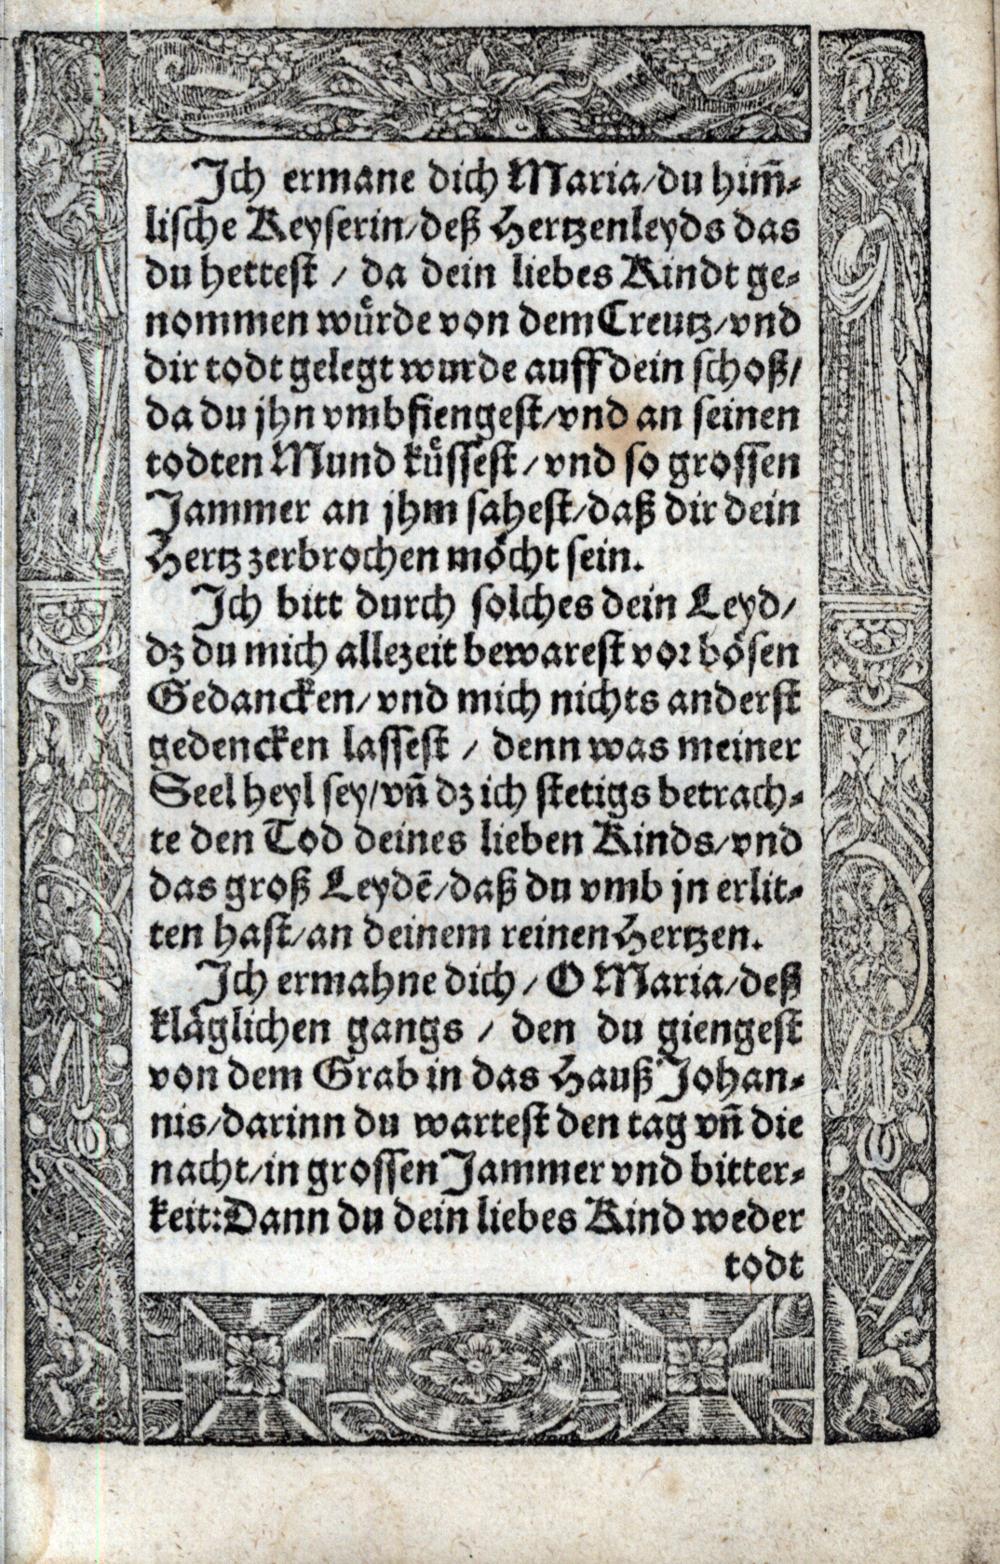 Ich ermane dich Maria/du him̄-
lische Keyserin/deß Hertzenleyds das
du hettest / da dein liebes Kindt ge-
nommen wuͤrde von dem Creutz/vnd
dir todt gelegt wurde auff dein schoß/
da du jhn vmbfiengest/vnd an seinen
todten Mund kuͤssest / vnd so grossen
Jammer an jhm sahest/daß dir dein
Hertz zerbrochen moͤcht sein.
Ich bitt durch solches dein Leyd/
dz du mich allezeit bewarest vor boͤsen
Gedancken/ vnd mich nichts anderst
gedencken lassest / denn was meiner
Seel heyl sey/vn̄ dz ich stetigs betrach-
te den Tod deines lieben Kinds/vnd
das groß Leydē/daß du vmb jn erlit-
ten hast/an deinem reinen Hertzen.
Ich ermahne dich / O Maria/deß
klaͤglichen gangs / den du giengest
von dem Grab in das Hauß Johan-
nis/darinn du wartest den tag vn̄ die
nacht/in grossen Jammer vnd bitter-
keit:Dann du dein liebes Kind weder
todt